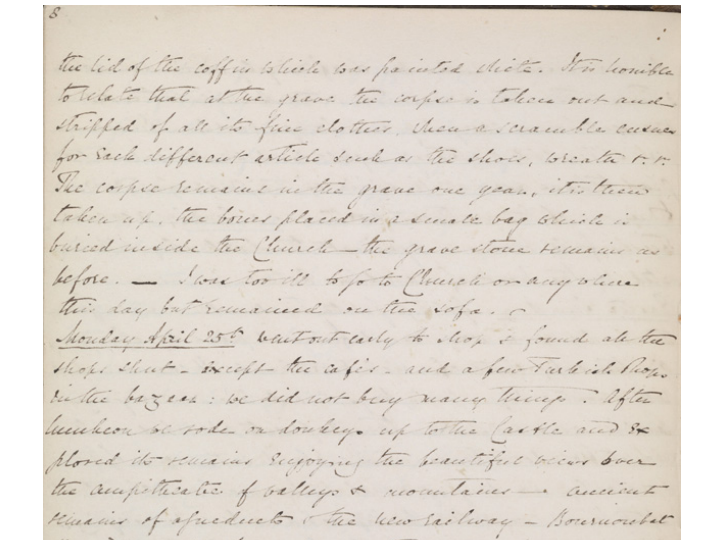 8
the lid of the coffin which was painted white. It is horrible
to relate that at the grave the corpse is taken out and
stripped of all its fine clothes, when a scramble ensues
for each different article such as the shoes, wreath &. &.
The corpse remains in the grave one year, it is then
taken up, the bones placed in a small bag which is
buried inside the Church – the grave stone remains as
before. — I was too ill to go to Church or anywhere
this day but remained on the sofa.
Monday April 25th went out early to shop & found all the
shops shut – except the cafés – and a few Turkish shops
in the bazaar: we did not buy many things. After
luncheon we rode on donkeys up to the Castle and ex
plored its remains enjoying the beautiful views over
the ampitheatre of valleys & mountains – ancient
remains of aqueducts & the new railway – Bournoubat